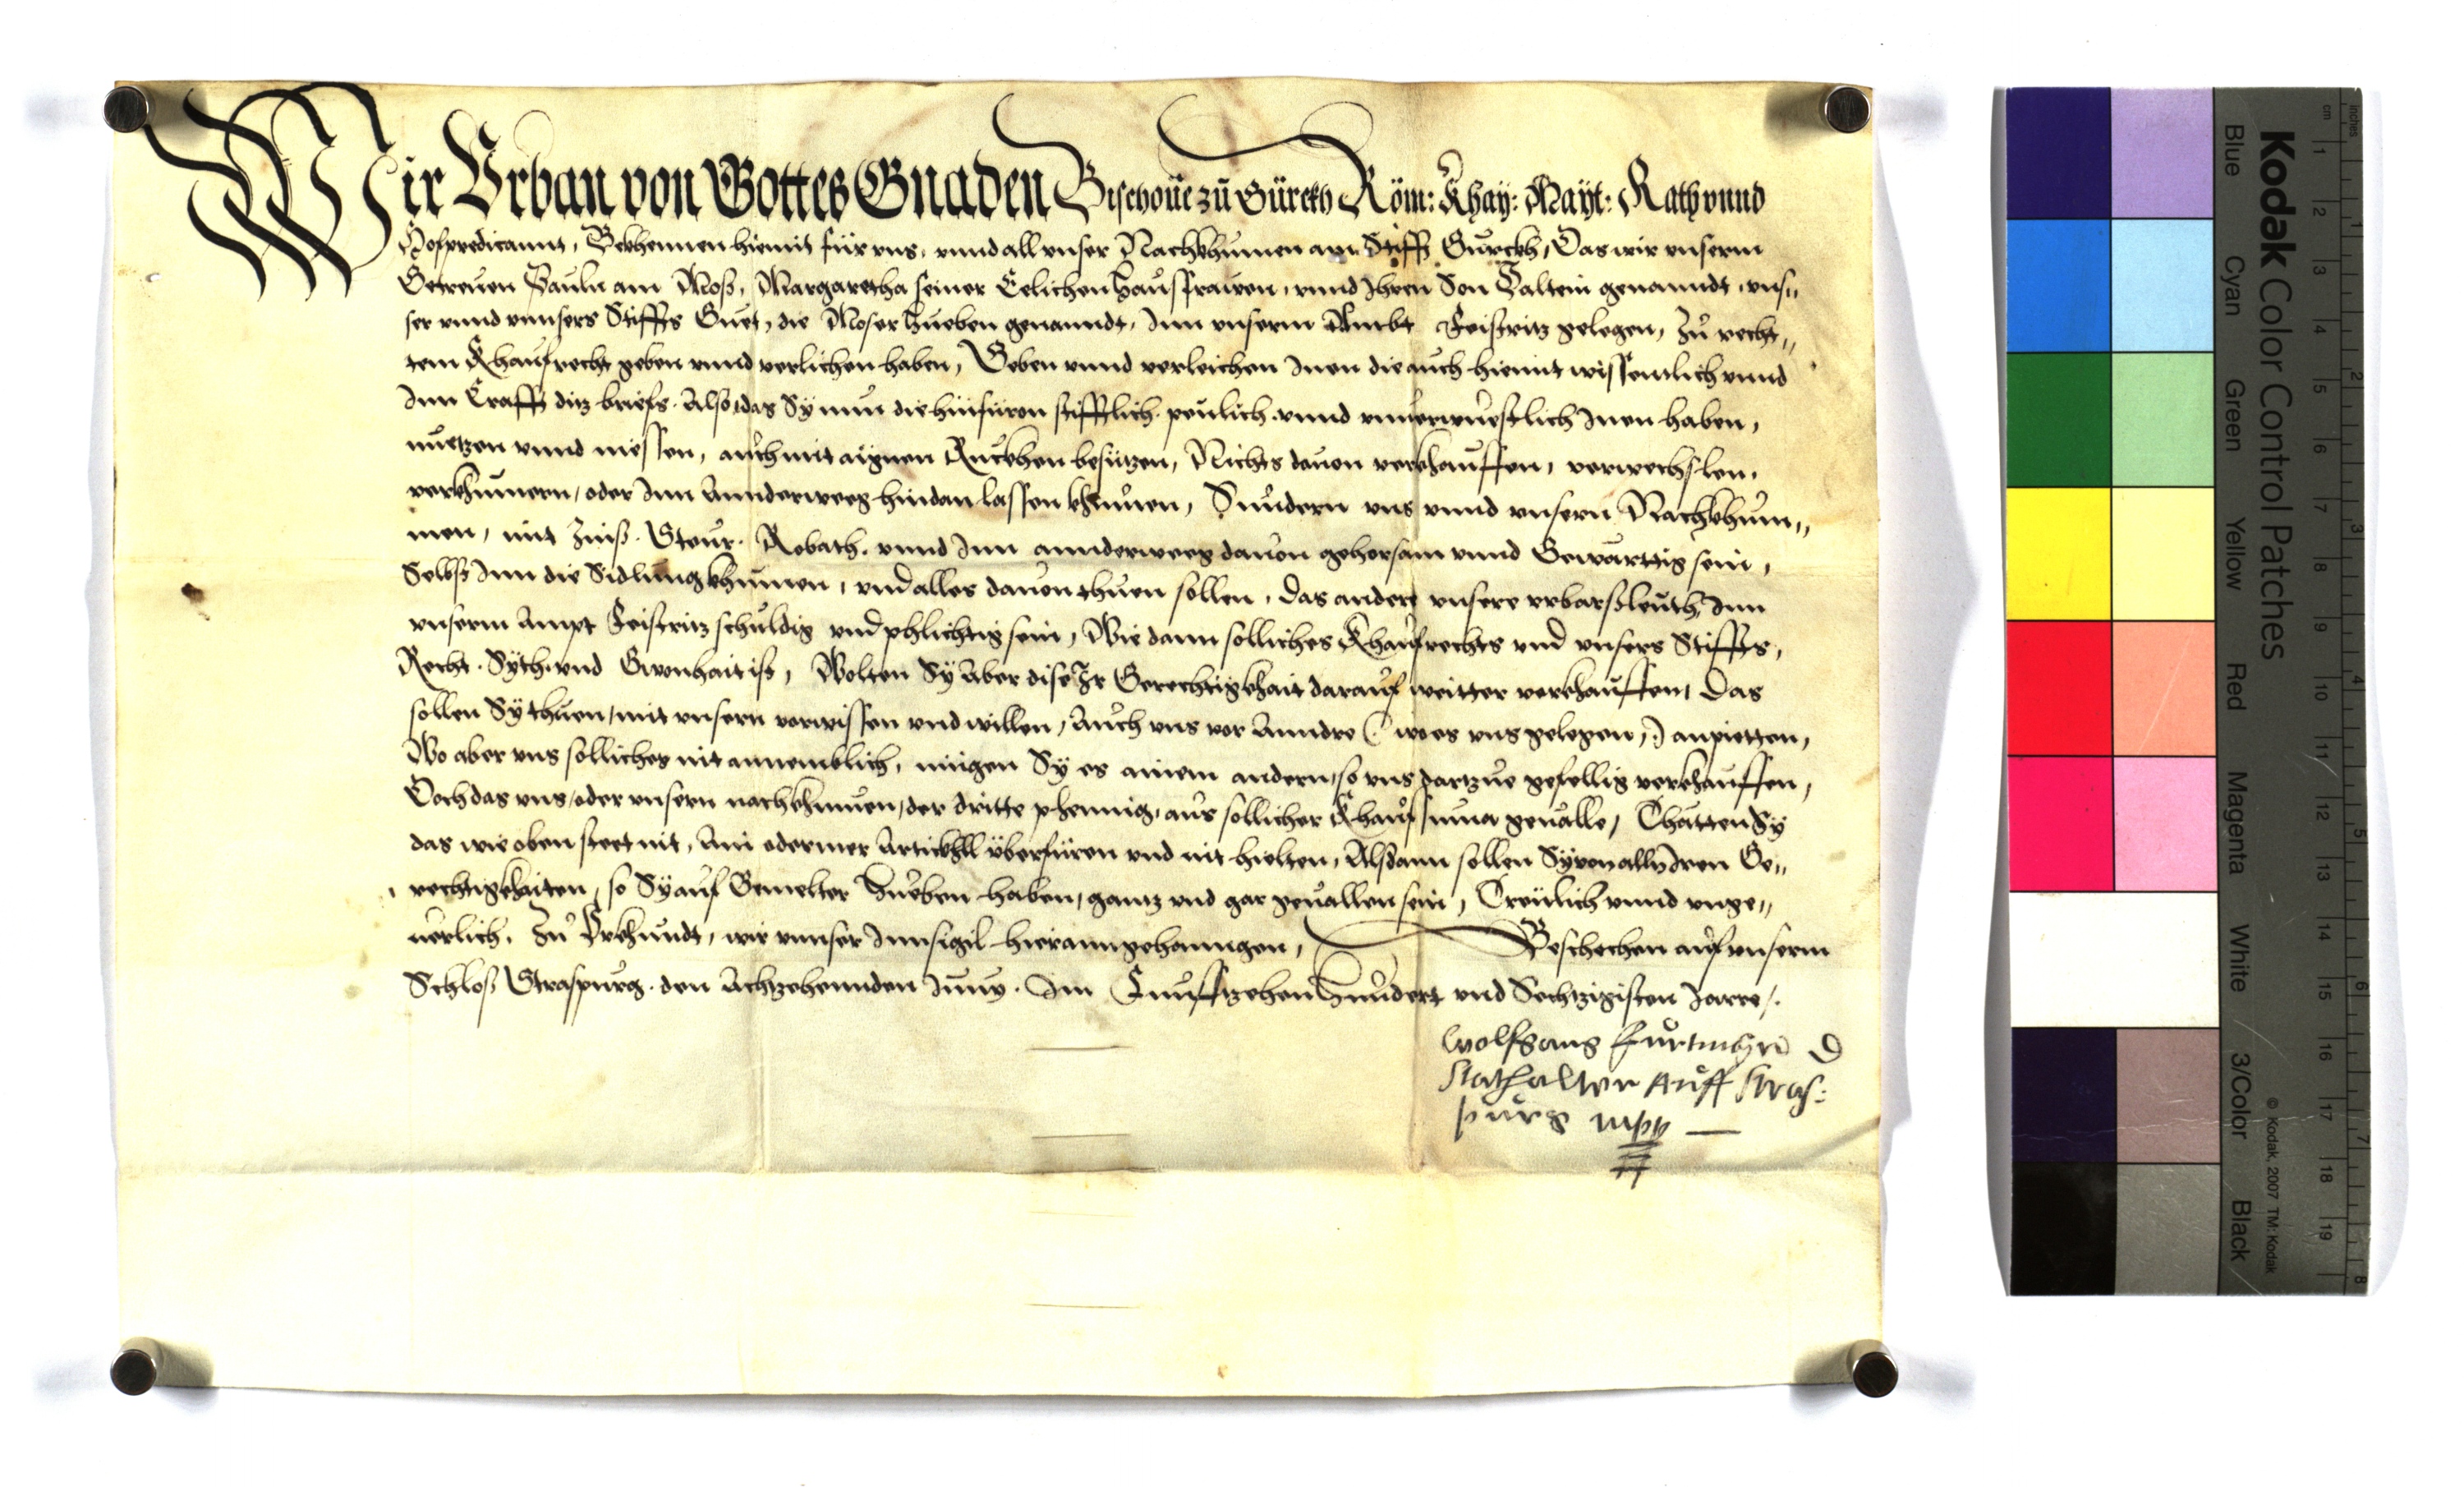 Wir Vrban von Gottes Gnaden Bischoue zů Gürckh Röm: Khay: Mayt: Rath vnnd
Hofpredicannt, Bekhennen hiemit für vns, vnnd all vnser Nachkhumen am Stifft Gurckh, Das wir vnserm
Getreuen Pauln am Mosz, Margaretha seiner Eelichen Hausfrawen, vnnd Ihren Son Valtein genanndt, vns„
ser vnnd vnnsers Stiffts Guet, die Moser Hueben genanndt, Inn vnserm Ambt Feistritz gelegen, Zů recht„
tem Khaufrecht geben vnnd verlichen haben, Geben vnnd verleichen Inen die auch hiemit wissentlich vnnd
Inn Crafft ditz briefs. Also, das Sy nun die hinfüron stifftlich. peulich. vnnd vnuerwuestlich Innen haben,
nuetzen vnnd niessen, auch mit aignen Ruckhen besitzen, Nichts dauon verkhauffen, verwechslen,
verkhumern, oder Inn Annderweeg hindan lassen khumen, Sundern vns vnnd vnsern Nachkhum„
men, mit Zinsz. Steur. Robath. vnnd Inn annderweeg dauon gehorsam vnnd Gewarttig sein,
Selbst Inn die Sidlung khumen, vnd alles dauon thuen sollen, das andere vnsere vrbarsleuth, Inn
vnserm Ampt Feistritz schuldig vnd phlichtig sein, Wie dann solliches Khaufrechts vnd vnsers Stiffts,
Recht. Syth. vnd Gwonhait ist, Wolten Sy Aber dise Ir Gerechtigkhait darauf weitter verkhauffen, Das
sollen Sy thuen, mit vnsern vorwissen vnd willen, Auch vns vor Anndre (: wo es vns gelegen,:) anpietten,
Wo aber vns solliches nit annemblich, mügen Sy es ainem andern, so vns dartzue gefellig verkhauffen,
Doch das vns, oder vnsern nachkhumen, der dritte phennig, aus sollicher Khaufsuma geualle, Thätten Sy
das wie oben steet nit, Ain oder mer Artickhll überfüren vnd nit hielten, Alsdann sollen Sy von alln Iren Ge„
rechtigkhaiten, so Sy auf Gemelter Hueben haben, gantz vnd gar geuallen sein, Treulich vnnd vnge„
uerlich. Zů Vrkhundt, wir vnnser Innsigil hieranngehanngen, Beschechen auf vnserm
Schlosz Straspurg. den Achtzehennden Juny. Im Funfftzehen Hundert vnd Sechtzigisten Jarre/.
Wolfgang
Stathalter auff Stras:
purg mpp
Kodak Color Control Patches
Blue Cyan Green Yellow Red Magenta White 3/Color Black
© Kodak, 2007 TM: Kodak
inches 1 2 3 4 5 6 7 8
cm 1 2 3 4 5 6 7 8 9 10 11 12 13 14 15 16 17 18 19